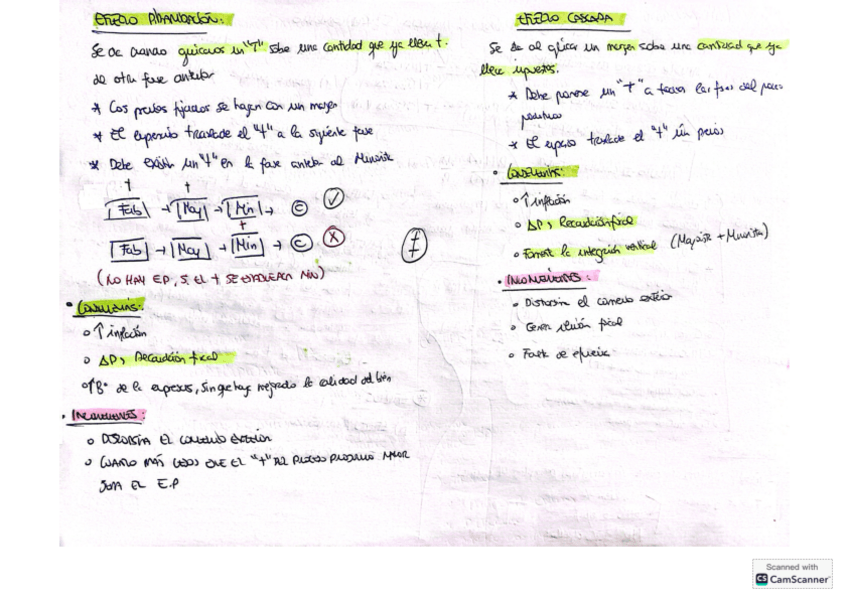 EFECTO PIRAMIDACIÓN:
Se da cuando aplicamos un "T" sobre una cantidad que ya lleva t.
de otra fase anterior
* Los precios fijados se hacen con un margen
* El empresario traslada el "t" a la siguiente fase
* Debe existir un "t" en la fase anterior al Minorista
t t
Fab → May → Min → C ✓
t
Fab → May → Min → C X
(NO HAY E.P, SI EL t SE ESTABLECE A MIN)
• CONSECUENCIAS:
o ↑ inflación
o ΔP, Recaudación fiscal
o ↑Bº de la empresas, sin que haya mejorado la calidad del bien
• INCONVENIENTES:
o DISTORSIÓN EL COMERCIO EXTERIOR
o CUANTO MÁS LEJOS QUE EL "t" AL PROCESO PRODUCTIVO MAYOR
SERÁ EL E.P
≠
EFECTO CASCADA
Se da al aplicar un margen sobre una cantidad que ya
lleva impuestos.
* Debe ponerse un "t" a todas las fases del proceso
productivo
* El empresario traslada el "t" vía precios
• CONSECUENCIAS:
o ↑ inflación
o ΔP, Recaudación fiscal
o Fomenta la integración vertical (Mayorista + Minorista)
• INCONVENIENTES:
o Distorsión el comercio exterior
o Genera ilusión fiscal
o Falta de eficacia
Scanned with
CS CamScanner